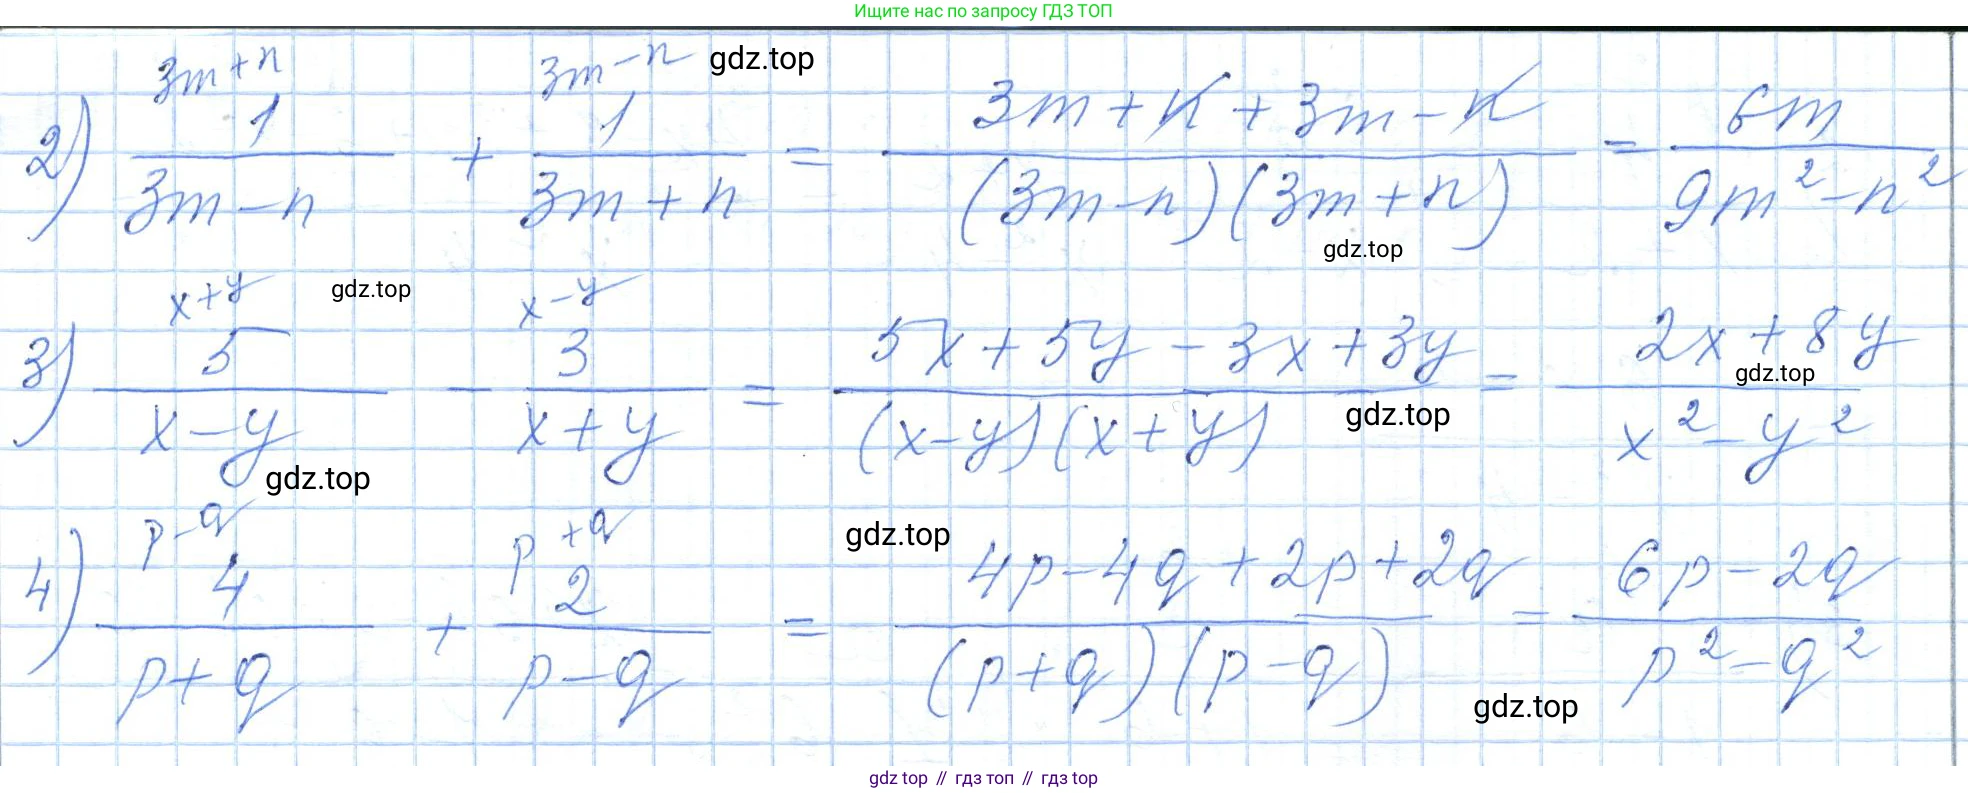 Ищите нас по запросу ГДЗ ТОП
3m+n 3m-n gdz.top
2) 1/(3m-n) + 1/(3m+n) = (3m+n+3m-n)/((3m-n)(3m+n)) = 6m/(9m²-n²)
gdz.top
x+y gdz.top x-y
3) 5/(x-y) - 3/(x+y) = (5x+5y-3x+3y)/((x-y)(x+y)) = (2x+8y)/(x²-y²)
gdz.top
gdz.top
gdz.top
p-q p+q gdz.top
4) 4/(p+q) + 2/(p-q) = (4p-4q+2p+2q)/((p+q)(p-q)) = (6p-2q)/(p²-q²)
gdz.top
gdz top // гдз топ // гдз top